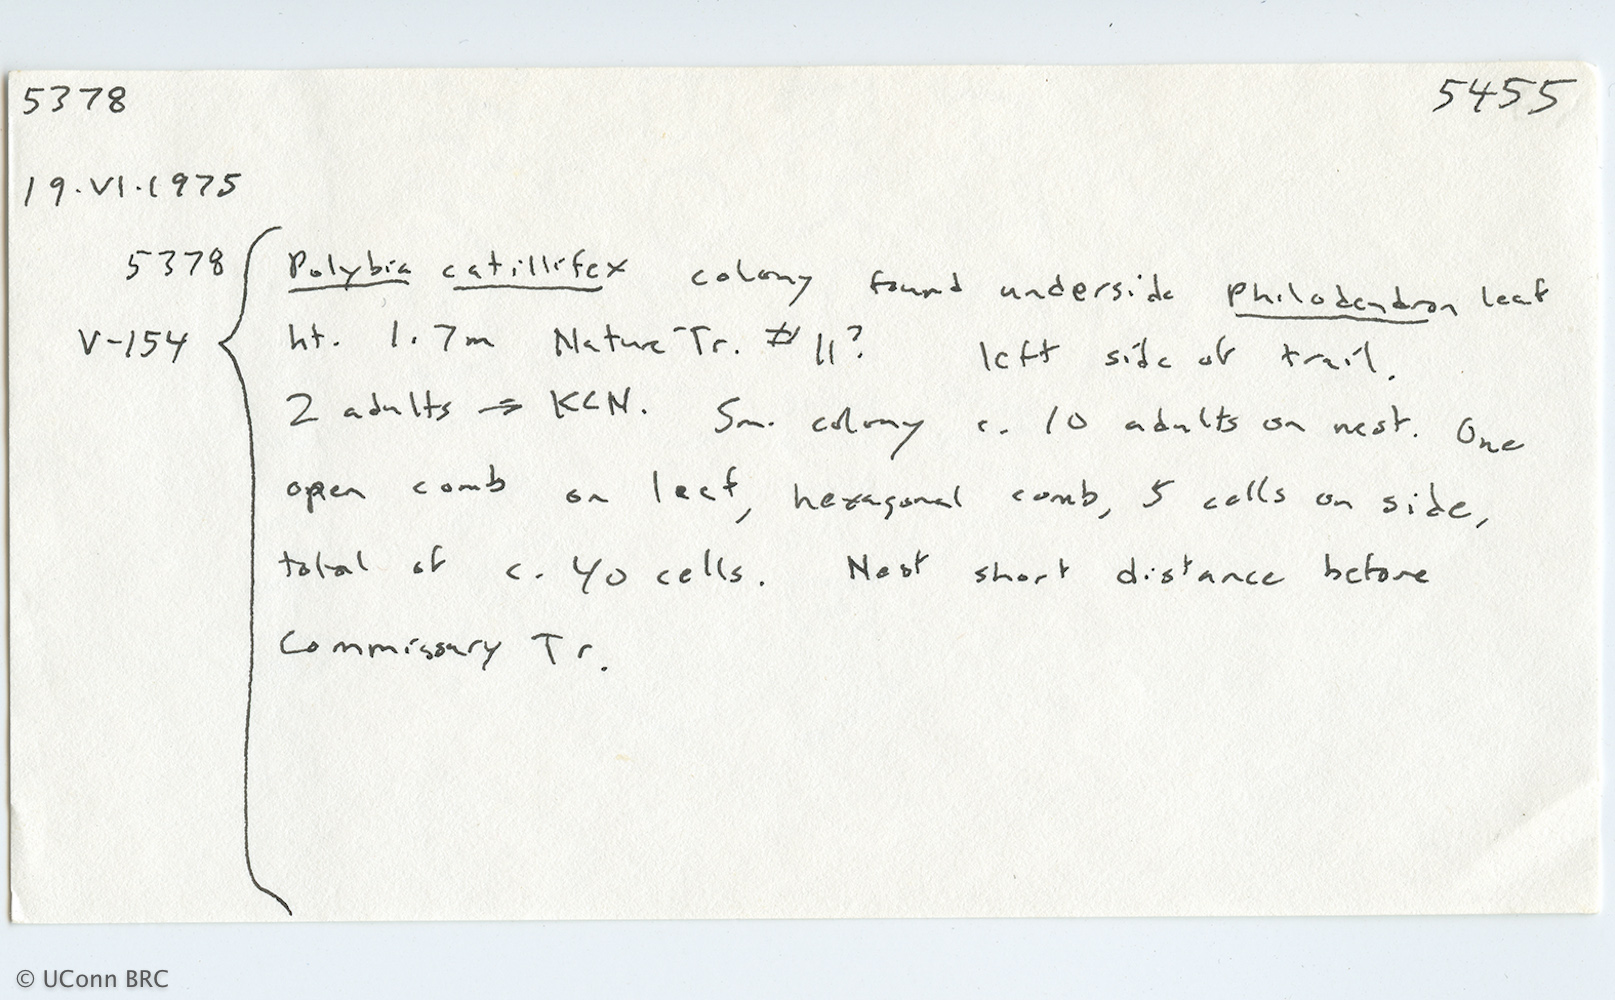 5378 5455
19.VI.1975
5378 Polybia catillifex colony found underside Philodendron leaf
V-154 ht. 1.7m Nature Tr. # 11? left side of trail.
2 adults → KCN. Sm. colony c. 10 adults on nest. One
open comb on leaf, hexagonal comb, 5 cells on side,
total of c. 40 cells. Nest short distance before
Commissary Tr.
© UConn BRC